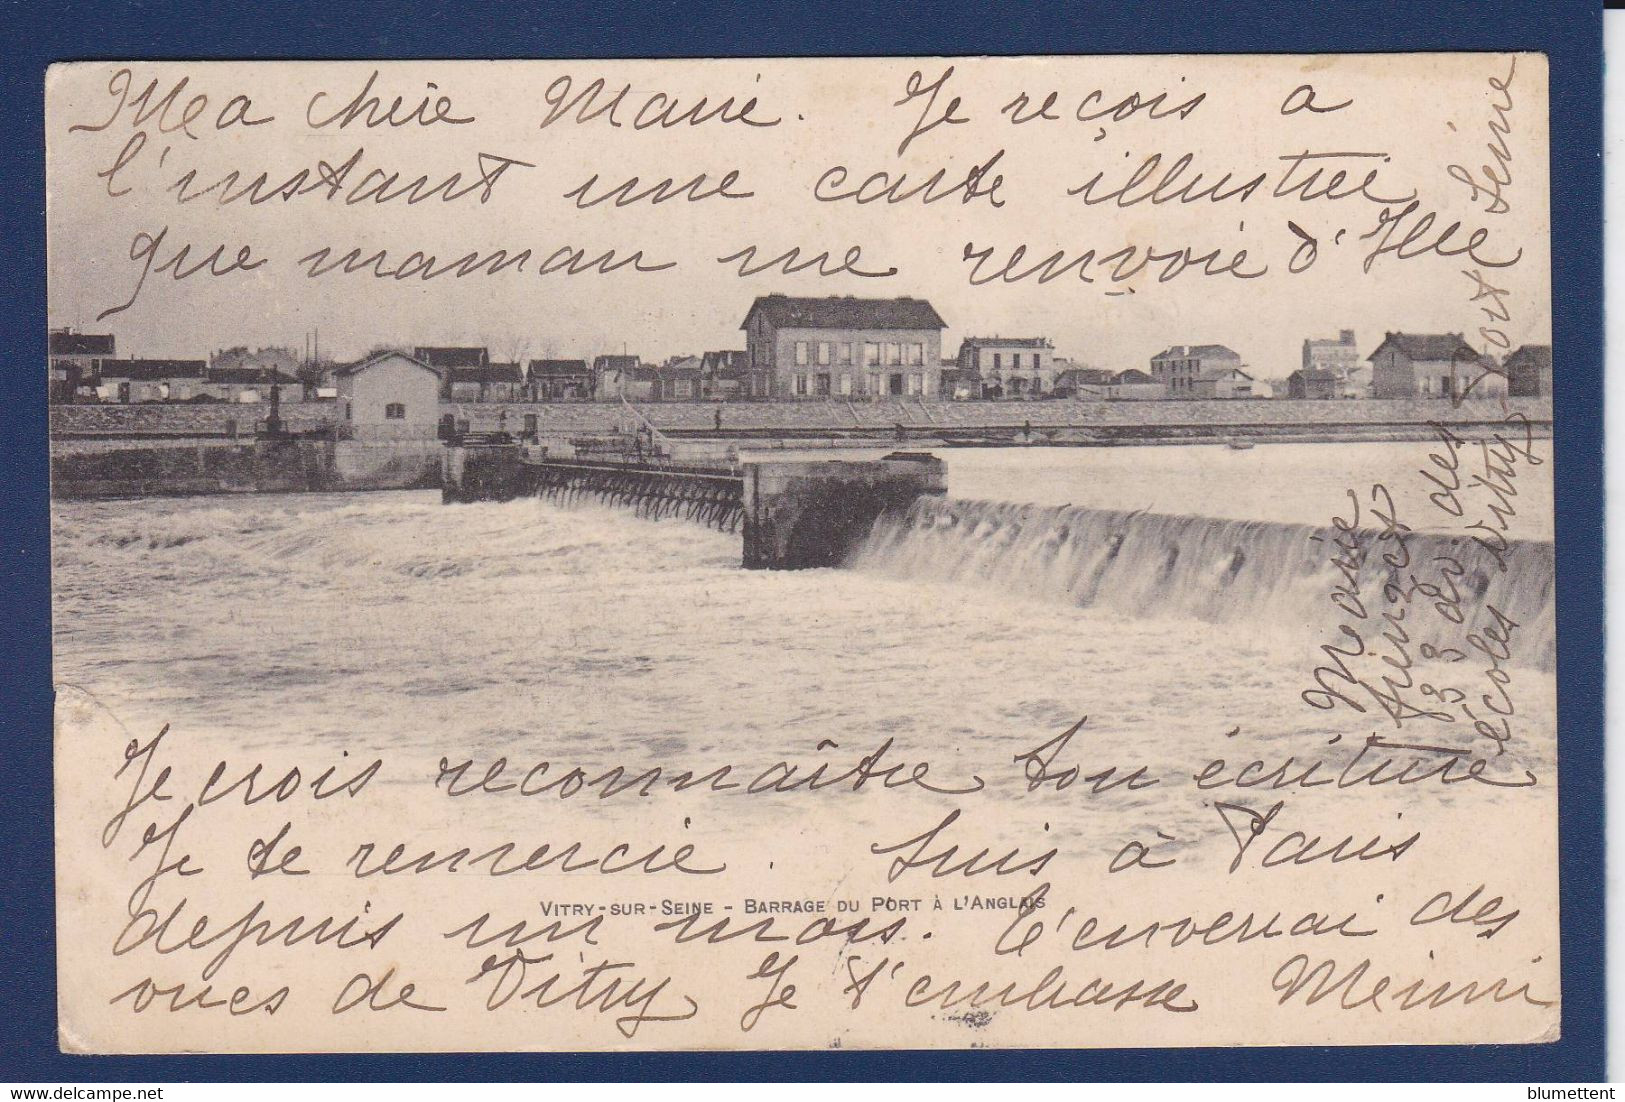 Ma chère Marie. Je reçois a
l'instant une carte illustrée
que maman me renvoie d'
Je crois reconnaître ton écriture
Je te remercie. Suis à Paris
VITRY-SUR-SEINE - BARRAGE DU PORT À L'ANGLAIS
depuis un mois. t'enverrai des
vues de Vitry Je t'embrasse Mimi
Marie
33 av. des
écoles Vitry
Port Seine
blumettent